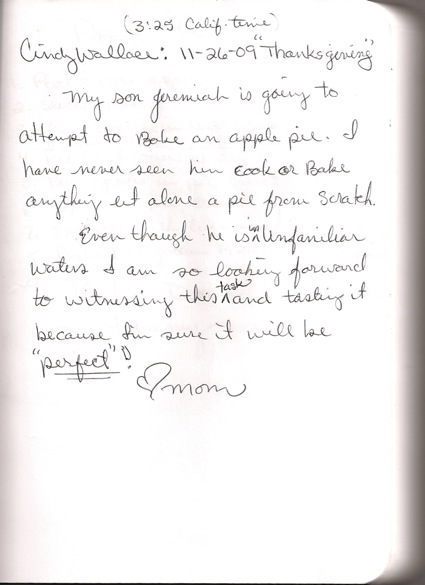 (3:25 Calif. time)
Cindy Wallace: 11-26-09 "Thanksgiving"
My son Jeremiah is going to
attempt to Bake an apple pie. I
have never seen him cook or Bake
anything let alone a pie from scratch.
Even though he is in Unfamiliar
waters I am so looking forward
to witnessing this task and tasting it
because I'm sure it will be
"perfect"!
♡ mom